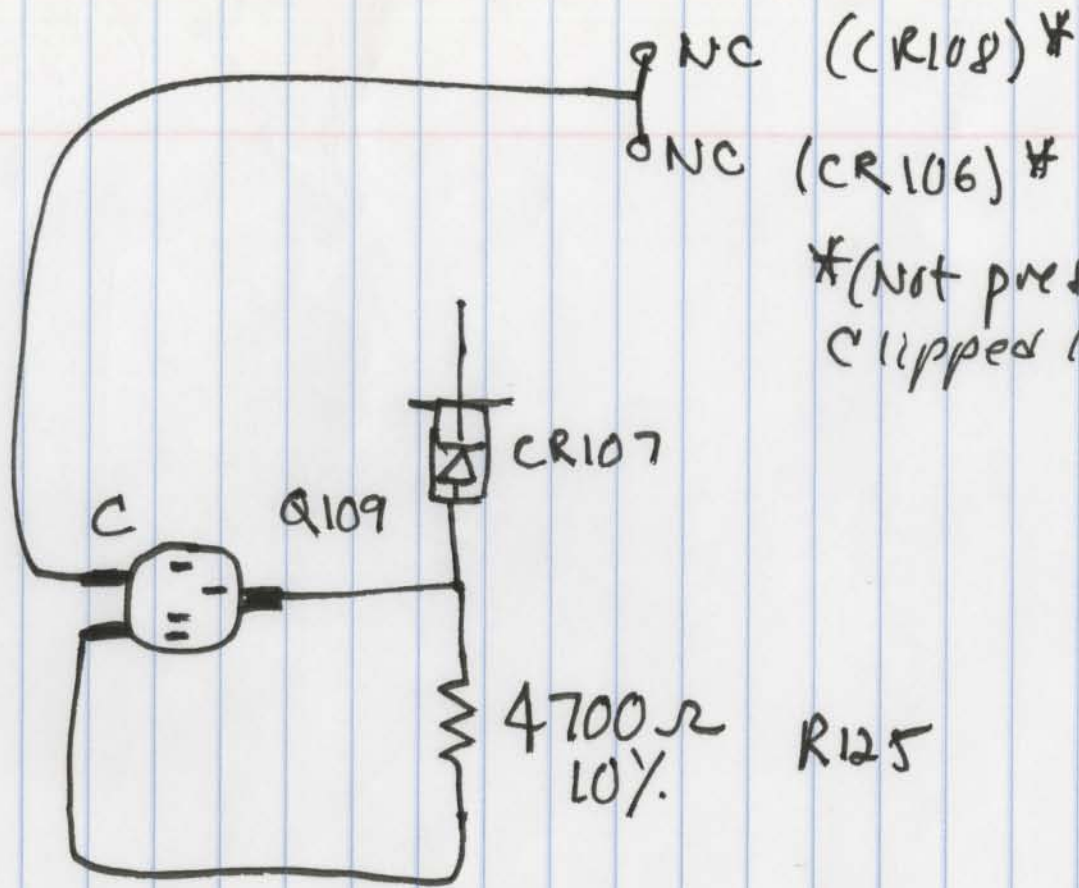 NC (CR108)*
NC (CR106)*
*(Not
Clipped
CR107
C
Q109
4700Ω
10%
R125